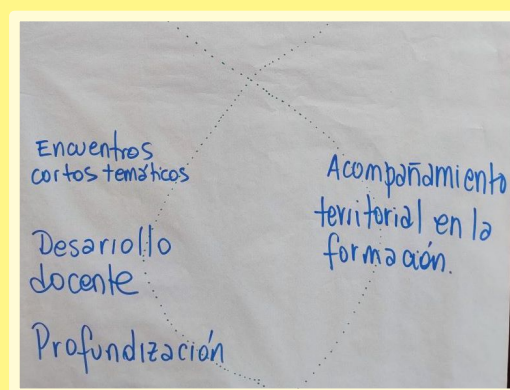 Encuentros
cortos temáticos
Desarrollo
docente
Profundización
Acompañamiento
territorial en la
formación.